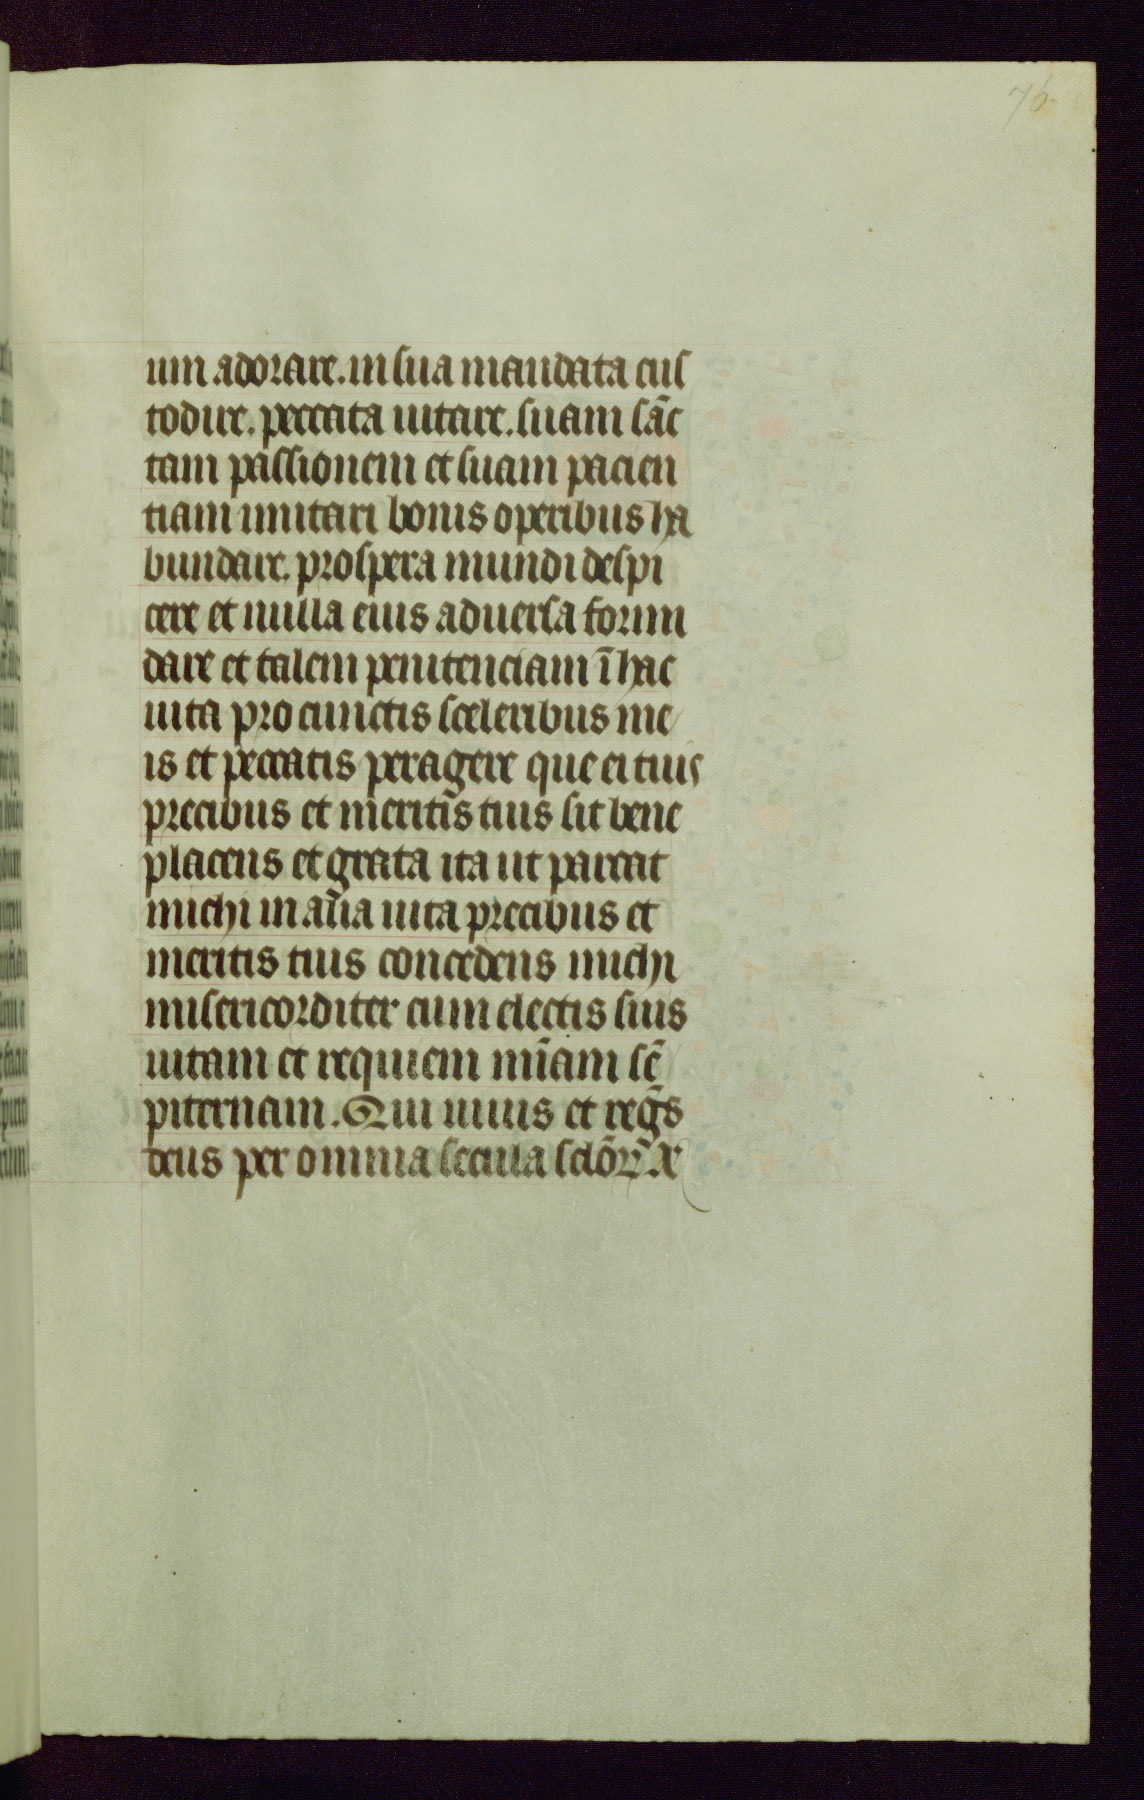 76
um adorare. in sua mandata cus
todire. peccata uitare. suam sāc
tam passionem et suam pacien
tiam imitari bonis operibus ha
bundare. prospera mundi despi
cere et nulla eius aduersa formi
dare et talem penitenciam ī hac
uita pro cunctis sceleribus me
is et peccatis peragere que ei tuis
precibus et meritis tuis sit bene
placens et grata ita ut parcat
michi in uita precibus et
meritis tuis concedens michi
misericorditer cum electis suis
uitam et requiem sē
piternam. Qui uiuis et regs̄
deus per omnia secula sclōꝝ